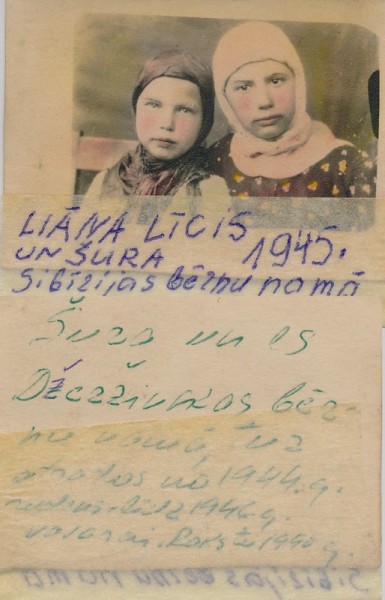 LIĀNA LĪCIS
UN ŠURA 1945.
Sibīrijas bērnu namā
Šura un es
Džeržinskas bēr-
nu namā, tur
atrados no 1944.g.
rudens līdz 1946.g.
vasarai. 1990 g.
Sibīrijas bērnu namā